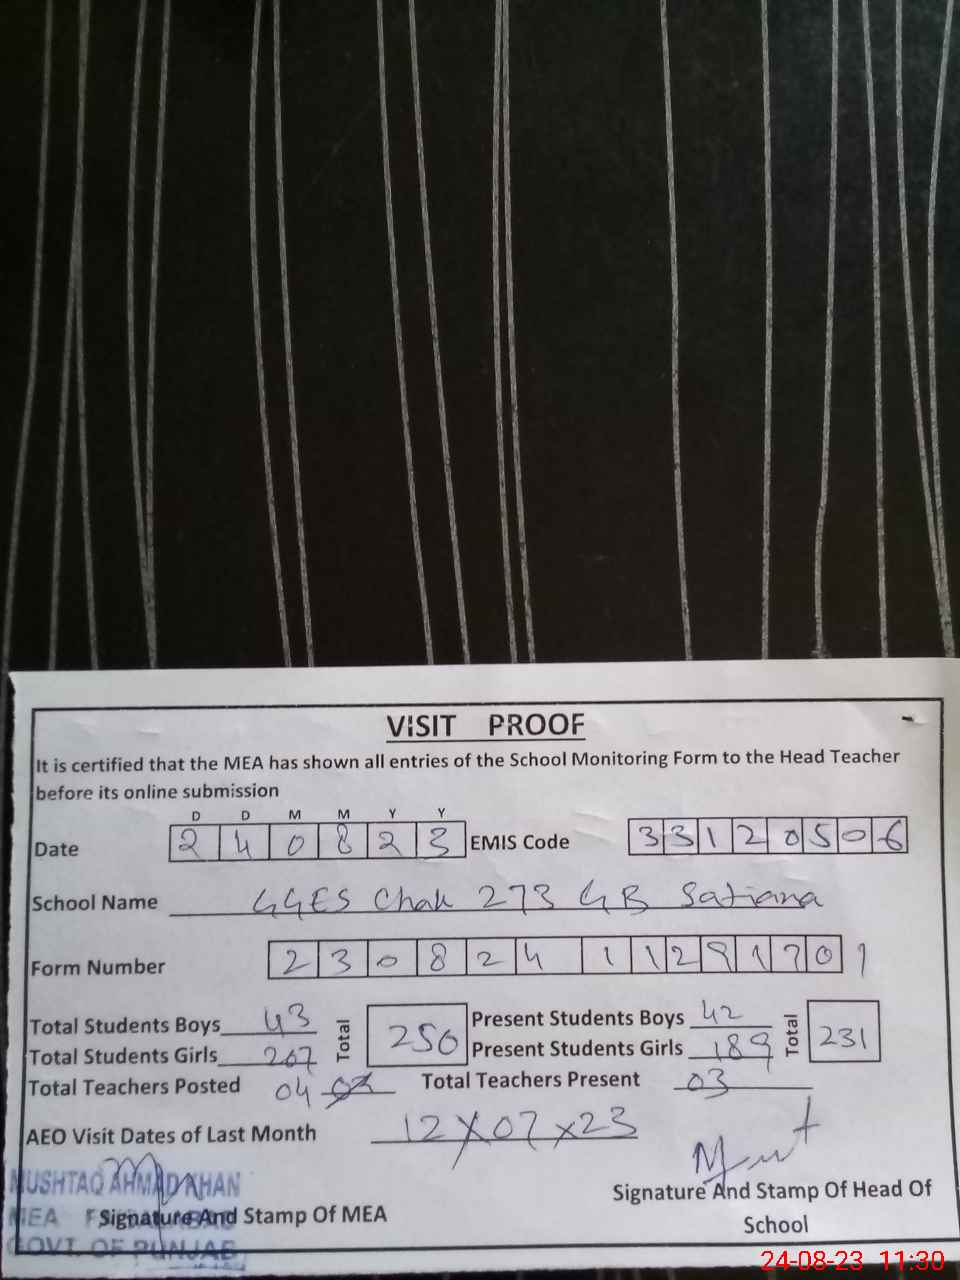 VISIT PROOF
It is certified that the MEA has shown all entries of the School Monitoring Form to the Head Teacher
before its online submission
D D M M Y Y
Date 2 4 0 8 2 3 EMIS Code 3 3 1 2 0 5 0 6
School Name GGES Chak 273 GB Satiana
Form Number 2 3 0 8 2 4 1 1 2 9 1 7 0 1
Total Students Boys 43 Total 250 Present Students Boys 42 Total 231
Total Students Girls 207 Present Students Girls 189
Total Teachers Posted 04 Total Teachers Present 03
AEO Visit Dates of Last Month 12 X 07 X 23
MUSHTAQ AHMAD KHAN
MEA
Signature And Stamp Of MEA
GOVT. OF PUNJAB
Signature And Stamp Of Head Of
School
24-08-23 11:30